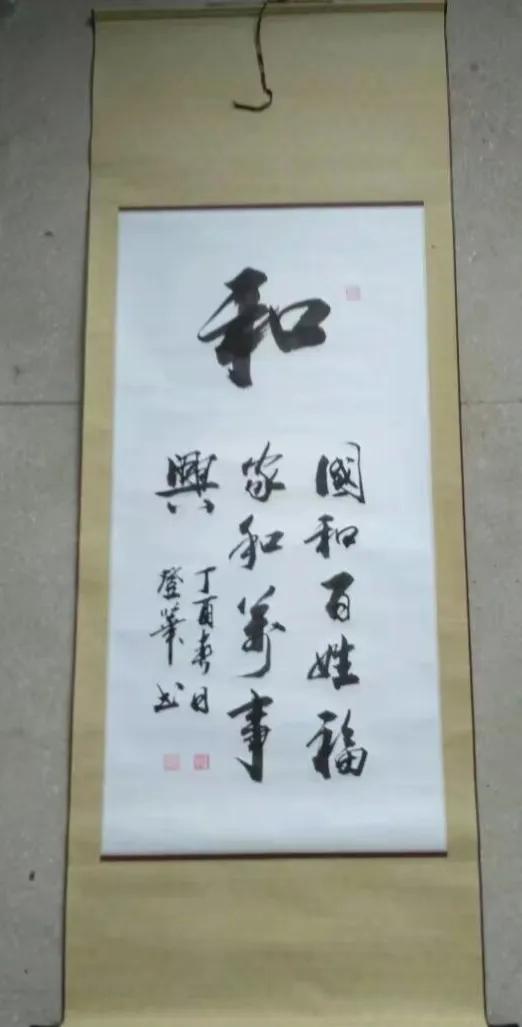 和
國和百姓福
家和萬事
興
丁酉春日
登業书